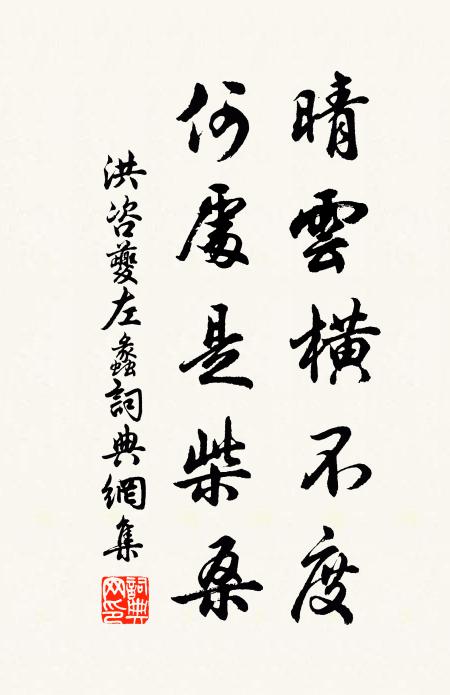 晴雲橫不度
何處是柴桑
洪咨夔左蠡詞典網集
詞典網印